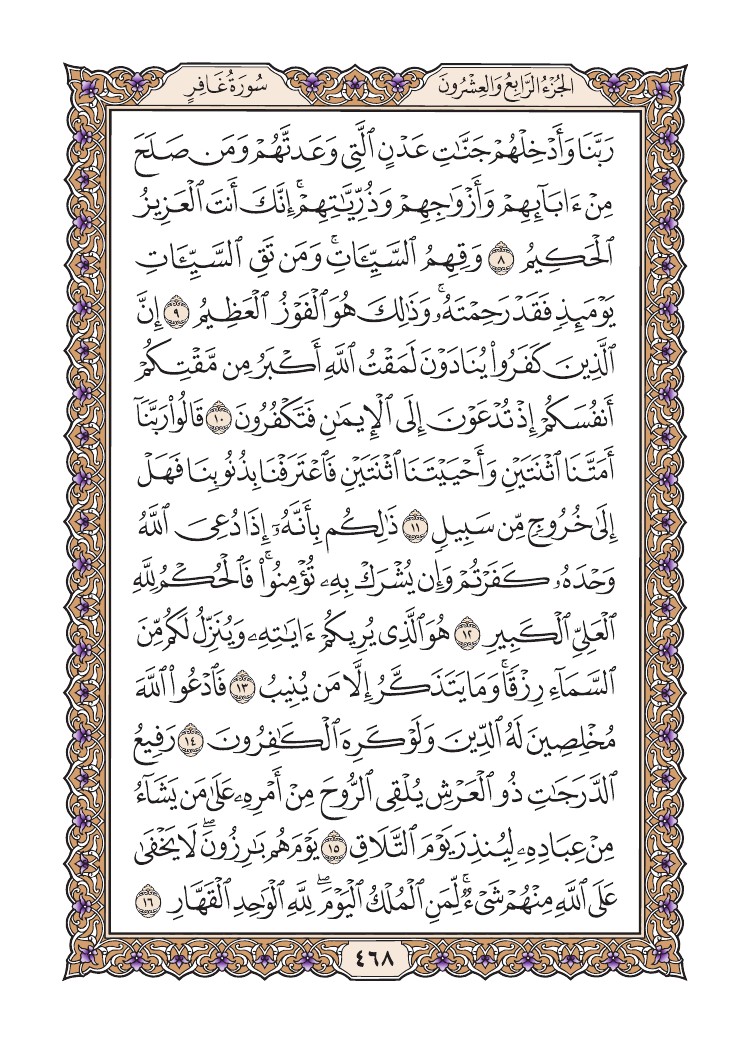 الجُزْءُ الرَّابِعُ وَالعِشْرُونَ
سُورَةُ غَافِرٍ
رَبَّنَا وَأَدۡخِلۡهُمۡ جَنَّٰتِ عَدۡنٍ ٱلَّتِي وَعَدتَّهُمۡ وَمَن صَلَحَ
مِنۡ ءَابَآئِهِمۡ وَأَزۡوَٰجِهِمۡ وَذُرِّيَّٰتِهِمۡۚ إِنَّكَ أَنتَ ٱلۡعَزِيزُ
ٱلۡحَكِيمُ ٨ وَقِهِمُ ٱلسَّيِّـَٔاتِۚ وَمَن تَقِ ٱلسَّيِّـَٔاتِ
يَوۡمَئِذٖ فَقَدۡ رَحِمۡتَهُۥۚ وَذَٰلِكَ هُوَ ٱلۡفَوۡزُ ٱلۡعَظِيمُ ٩ إِنَّ
ٱلَّذِينَ كَفَرُواْ يُنَادَوۡنَ لَمَقۡتُ ٱللَّهِ أَكۡبَرُ مِن مَّقۡتِكُمۡ
أَنفُسَكُمۡ إِذۡ تُدۡعَوۡنَ إِلَى ٱلۡإِيمَٰنِ فَتَكۡفُرُونَ ١٠ قَالُواْ رَبَّنَآ
أَمَتَّنَا ٱثۡنَتَيۡنِ وَأَحۡيَيۡتَنَا ٱثۡنَتَيۡنِ فَٱعۡتَرَفۡنَا بِذُنُوبِنَا فَهَلۡ
إِلَىٰ خُرُوجٖ مِّن سَبِيلٖ ١١ ذَٰلِكُم بِأَنَّهُۥٓ إِذَا دُعِيَ ٱللَّهُ
وَحۡدَهُۥ كَفَرۡتُمۡ وَإِن يُشۡرَكۡ بِهِۦ تُؤۡمِنُواْۚ فَٱلۡحُكۡمُ لِلَّهِ
ٱلۡعَلِيِّ ٱلۡكَبِيرِ ١٢ هُوَ ٱلَّذِي يُرِيكُمۡ ءَايَٰتِهِۦ وَيُنَزِّلُ لَكُم مِّنَ
ٱلسَّمَآءِ رِزۡقٗاۚ وَمَا يَتَذَكَّرُ إِلَّا مَن يُنِيبُ ١٣ فَٱدۡعُواْ ٱللَّهَ
مُخۡلِصِينَ لَهُ ٱلدِّينَ وَلَوۡ كَرِهَ ٱلۡكَٰفِرُونَ ١٤ رَفِيعُ
ٱلدَّرَجَٰتِ ذُو ٱلۡعَرۡشِ يُلۡقِي ٱلرُّوحَ مِنۡ أَمۡرِهِۦ عَلَىٰ مَن يَشَآءُ
مِنۡ عِبَادِهِۦ لِيُنذِرَ يَوۡمَ ٱلتَّلَاقِ ١٥ يَوۡمَ هُم بَٰرِزُونَۖ لَا يَخۡفَىٰ
عَلَى ٱللَّهِ مِنۡهُمۡ شَيۡءٞۚ لِّمَنِ ٱلۡمُلۡكُ ٱلۡيَوۡمَۖ لِلَّهِ ٱلۡوَٰحِدِ ٱلۡقَهَّارِ ١٦
٤٦٨